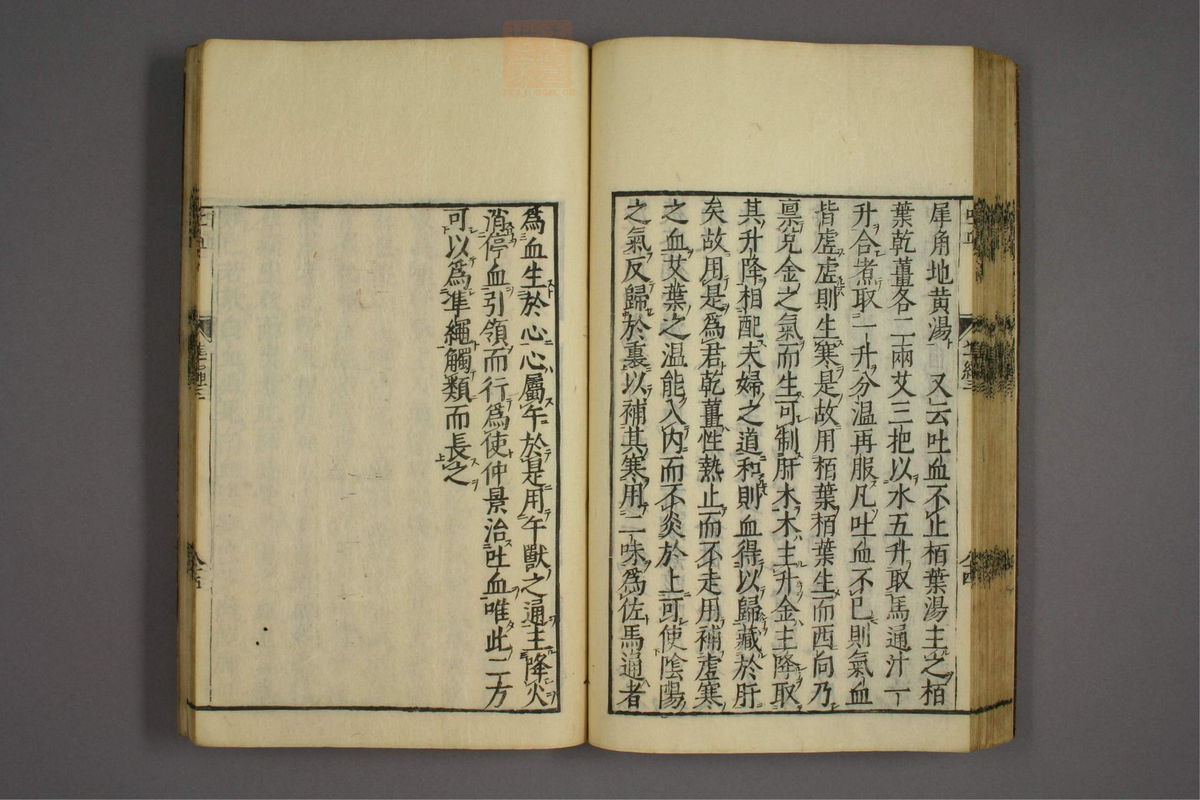 犀角地黄湯　又云吐血不止栢葉湯主之栢
葉乾薑各二兩艾三把以水五升取馬通汁一
升合煮取一升分温再服凡吐血不已則氣血
皆虚虚則生寒是故用栢葉栢葉生而西向乃
禀兌金之氣而生可制肝木木主升金主降取
其升降相配夫婦之道和則血得以歸藏於肝
矣故用是爲君乾薑性熱止而不走用補虚寒
之血艾葉之温能入内而不炎於上可使陰陽
之氣反歸於裏以補其寒用二味爲佐馬通者
爲血生於心心屬午於是用午獸之通主降火
消停血引領而行爲使仲景治吐血唯此二方
可以爲準繩觸類而長之